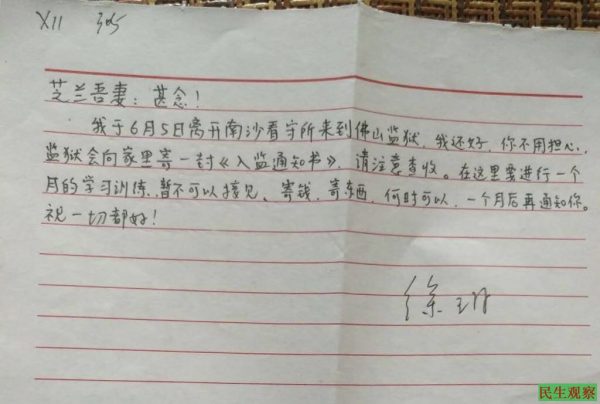 XII 
芝兰吾妻：甚念！
我于6月5日离开南沙看守所来到佛山监狱，我还好，你不用担心，
监狱会向家里寄一封《入监通知书》，请注意查收。在这里要进行一个
月的学习训练，暂不可以接见、寄钱、寄东西，何时可以，一个月后再通知你。
祝一切都好！
徐琳
民生观察